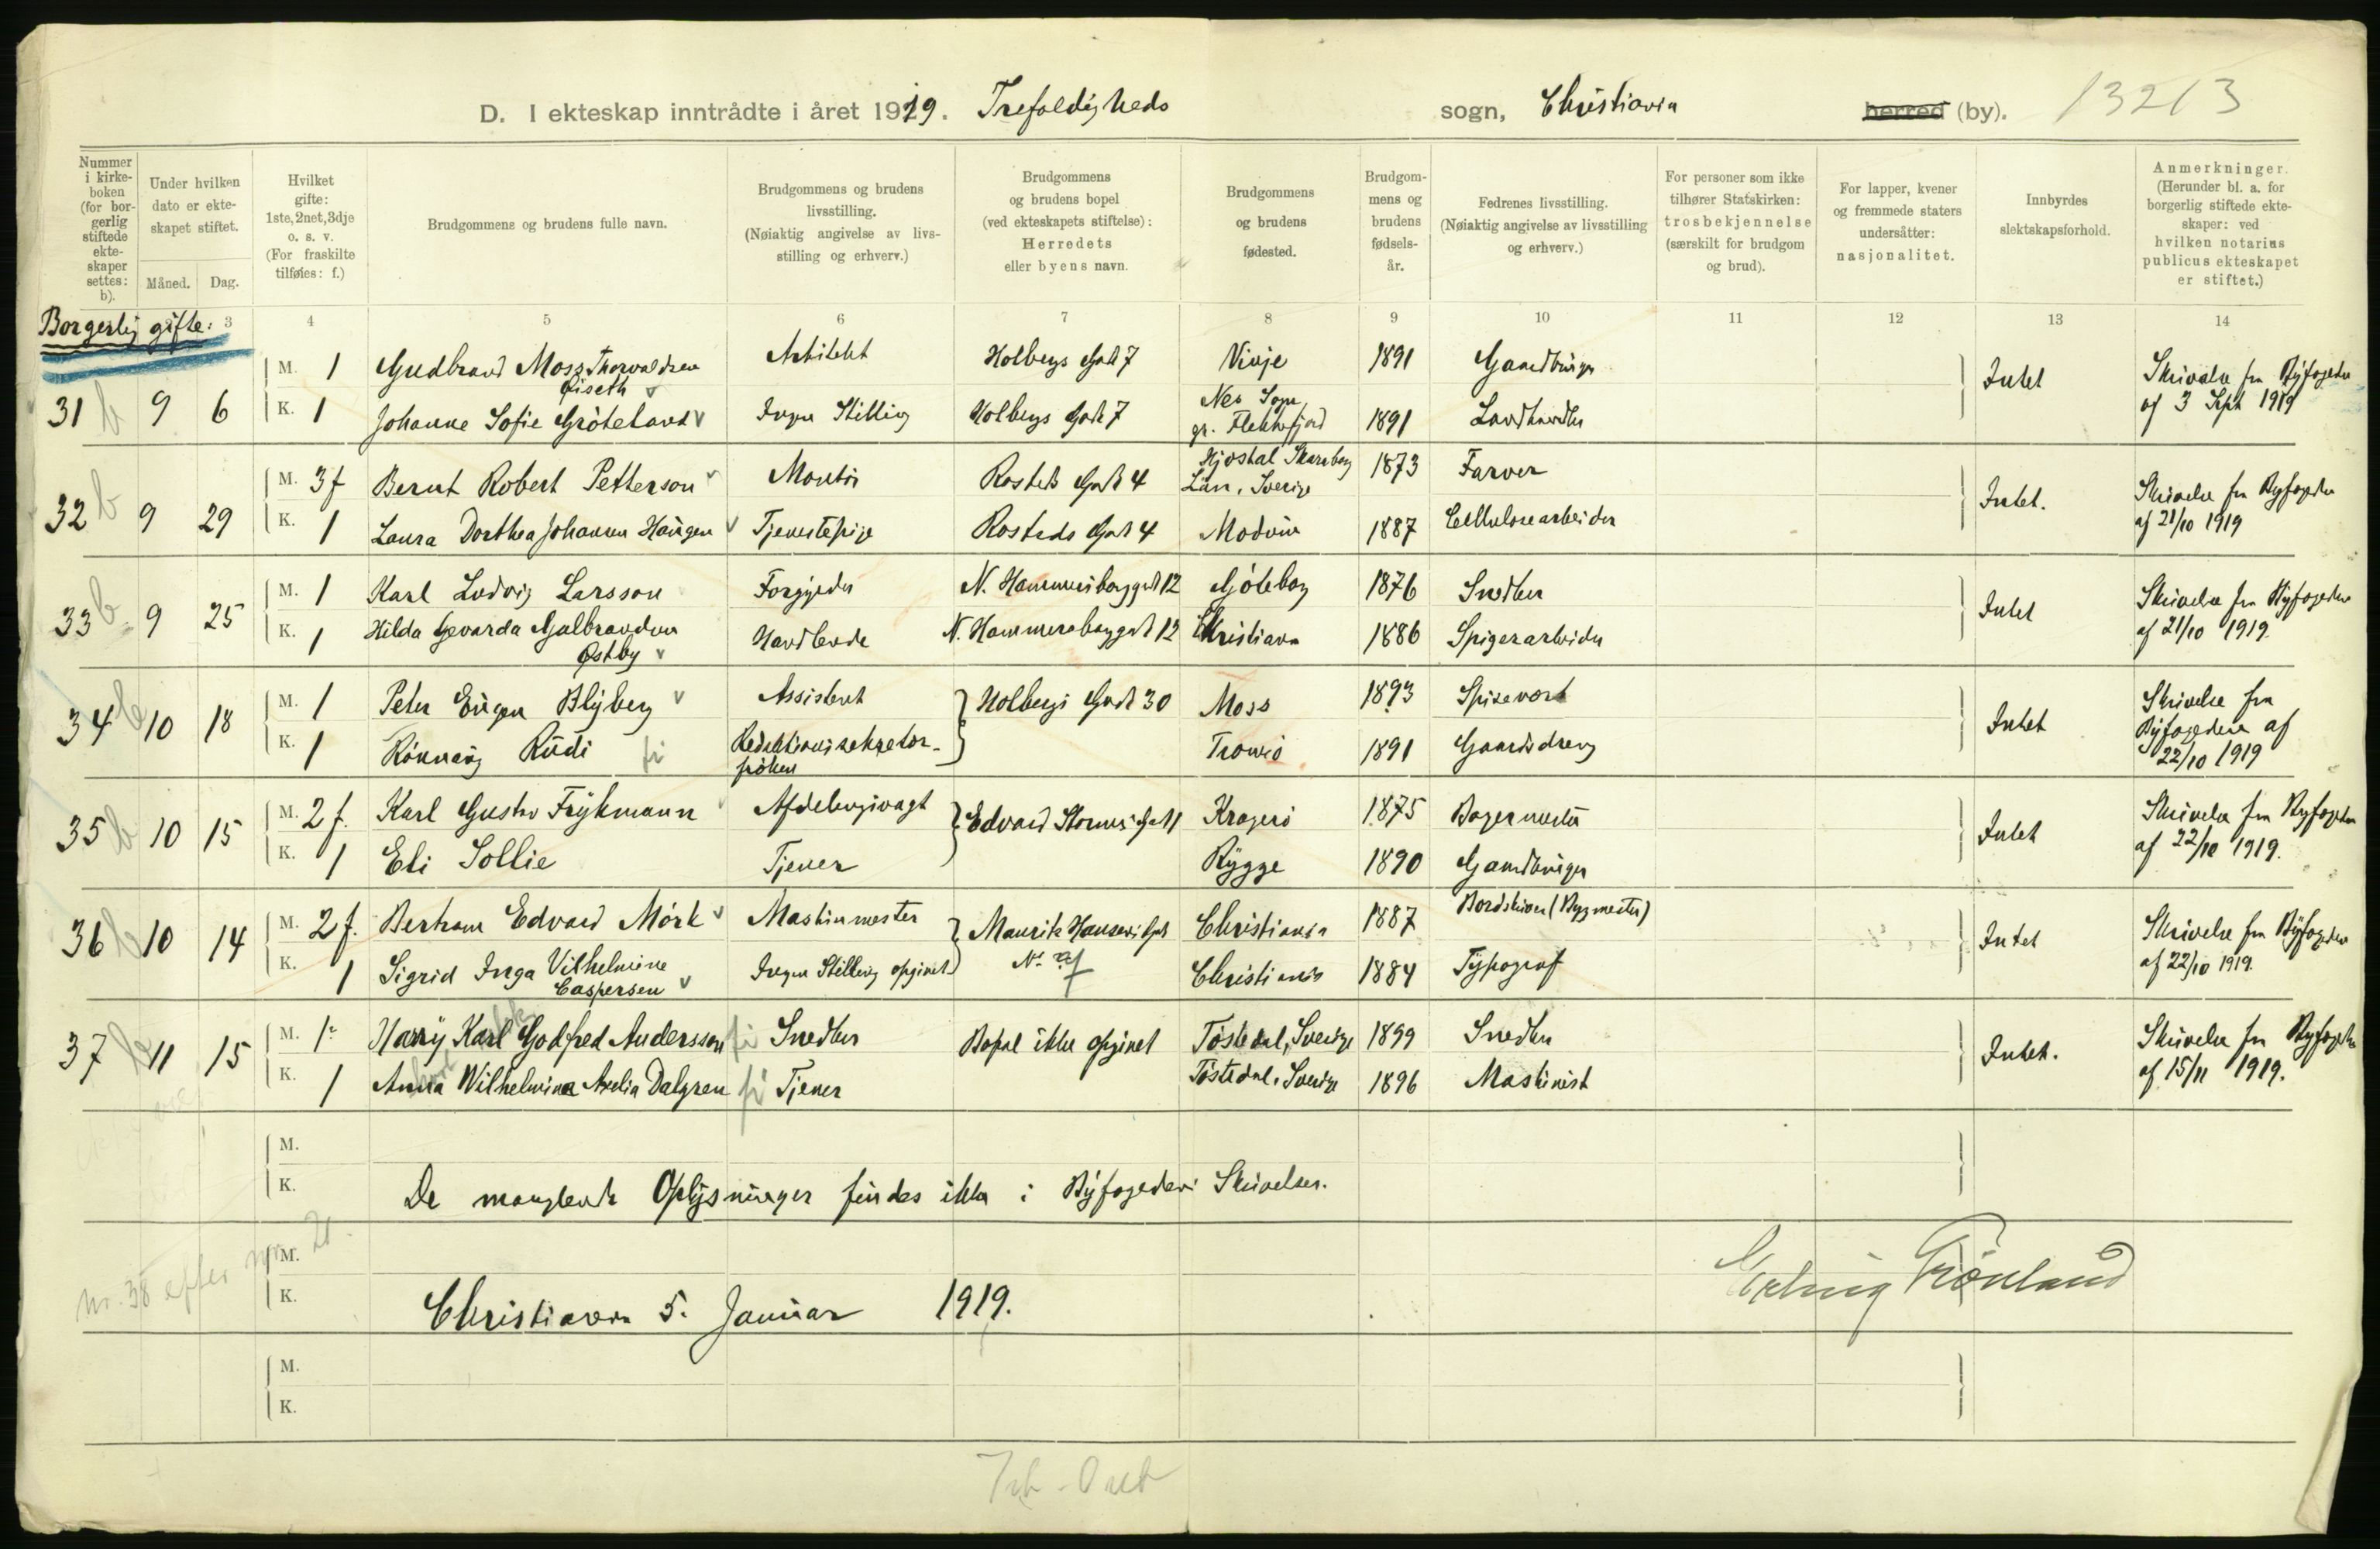 D. I ekteskap inntrådte i året 1919. Trefoldigheds sogn, Christiania herred (by). 13213
Nummer i kirkeboken (for borgerlig stiftede ekteskaper settes: b).
Under hvilken dato er ekteskapet stiftet.
Måned. Dag.
Hvilket gifte: 1ste, 2net, 3dje o. s. v. (For fraskilte tilføies: f.)
Brudgommens og brudens fulle navn.
Brudgommens og brudens livsstilling. (Nøiaktig angivelse av livsstilling og erhverv.)
Brudgommens og brudens bopel (ved ekteskapets stiftelse): Herredets eller byens navn.
Brudgommens og brudens fødested.
Brudgommens og brudens fødselsår.
Fedrenes livsstilling. (Nøiaktig angivelse av livsstilling og erhverv.)
For personer som ikke tilhører Statskirken: trosbekjennelse (særskilt for brudgom og brud).
For lapper, kvener og fremmede staters undersåtter: nasjonalitet.
Innbyrdes slektskapsforhold.
Anmerkninger. (Herunder bl. a. for borgerlig stiftede ekteskaper: ved hvilken notarius publicus ekteskapet er stiftet.)
Borgerlig gifte: 3 4 5 6 7 8 9 10 11 12 13 14
31 b 9 6
M. 1 Gudbrand Moss Thorvaldsen Øiseth Arkitekt Holbergs Gade 7 Vinje 1891 Gaardbruger
K. 1 Johanne Sofie Gröteland Ingen Stilling Holbergs Gade 7 Nes Sogn gr. Flekkefjord 1891 Landhandler
Intet Skrivelse fra Byfogden af 3 Sept 1919
32 b 9 29
M. 3 f Bernt Robert Petterson Montör Rosteds Gade 4 Län, Sverige 1873 Farver
K. 1 Laura Dorthea Johansen Haugen Tjenestepige Rosteds Gade 4 Modum 1887 Cellulosearbeider
Intet. Skrivelse fra Byfogden af 21/10 1919
33 b 9 25
M. 1 Karl Ludvig Larsson Forgylder N. Hammersborggt 12 Göteborg 1876 Snedker
K. 1 Hilda Gevarda Gulbrandsen Østby Handlende N. Hammersborggt 12 Christiania 1886 Spigerarbeider
Intet Skrivelse fra Byfogden af 21/10 1919.
34 b 10 18
M. 1 Peter Eugen Blyberg Assistent Holbergs Gade 30 Moss 1893 Spisevert
K. 1 Rönnaug Rudi Redaktionssekretær- fröken Tromsö 1891 Gaardsdreng
Intet Skrivelse fra Byfogdens af 22/10 1919
35 b 10 15
M. 2 f. Karl Gustav Frykmann Afdelingsvagt Edvard Storms Gade 1 Kragerö 1875 Bagermester
K. 1 Eli Sollie Tjener Rygge 1890 Gaardbruger
Intet Skrivelse fra Byfogden af 22/10 1919.
36 b 10 14
M. 2 f. Bertram Edvard Mörk Maskinmester Maurits Hansens Gade Christiania 1887 Bordskriver (Bygmester)
K. 1 Sigrid Inga Vilhelmine Caspersen Ingen Stilling opgivet Christiania 1884 Typograf
Intet Skrivelse fra Byfogden af 22/10 1919.
37 b 11 15
M. 1 Harry Karl Godfred Andersson Snedker Bopæl ikke opgivet Töstedal, Sverige 1899 Snedker
K. 1 Anna Wilhelmina Axelia Dalgren Tjener Töstedal, Sverige 1896 Maskinist
Intet. Skrivelse fra Byfogden af 15/11 1919.
M.
K. De manglende Oplysninger findes ikke i Byfogdens Skrivelser.
nr. 38 efter nr. 21.
M.
K. Christiania 5. Januar 1919. Erling Grönland
M.
K.